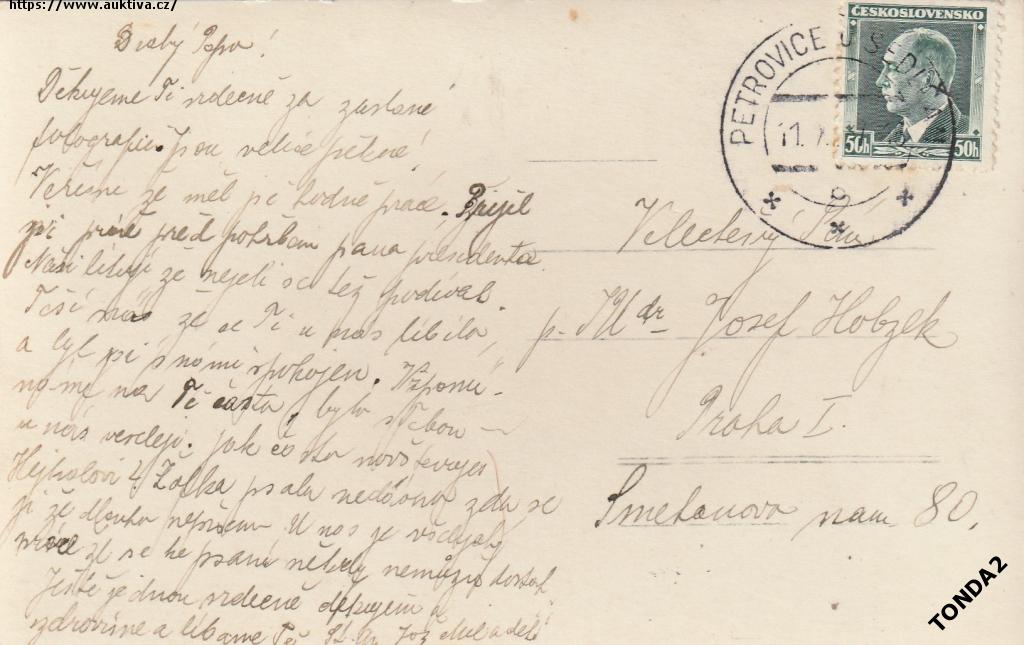 https://www.auktiva.cz/
Drahý Pepo!
Děkujeme Ti srdečně za zaslané
fotografie. Jsou velice pěkné
Věříme že měl jsi hodně práce. Přijel
jsi právě před pohřbem pana presidenta
Naši litují že nejeli se též podívat.
Těší nás že se Ti u nás líbilo,
a byl jsi s námi spokojen. Vzpomí-
náme na Tě často, bylo s Tebou
u nás veseleji. Jak často navštěvuješ
Žofka psala nedávno zdá se
jí že dlouho nepíšeme. U nás je
více že se ke psaní někdy nemůžu dostat
Ještě jednou srdečně děkujem a
zdravíme a líbáme Tě
ČESKOSLOVENSKO
50h 50h
PETROVICE U SEDLČAN
Velectěný Pán
p. JUdr Josef Hobzek
Praha I.
Smetanovo nám 80.
TONDA2